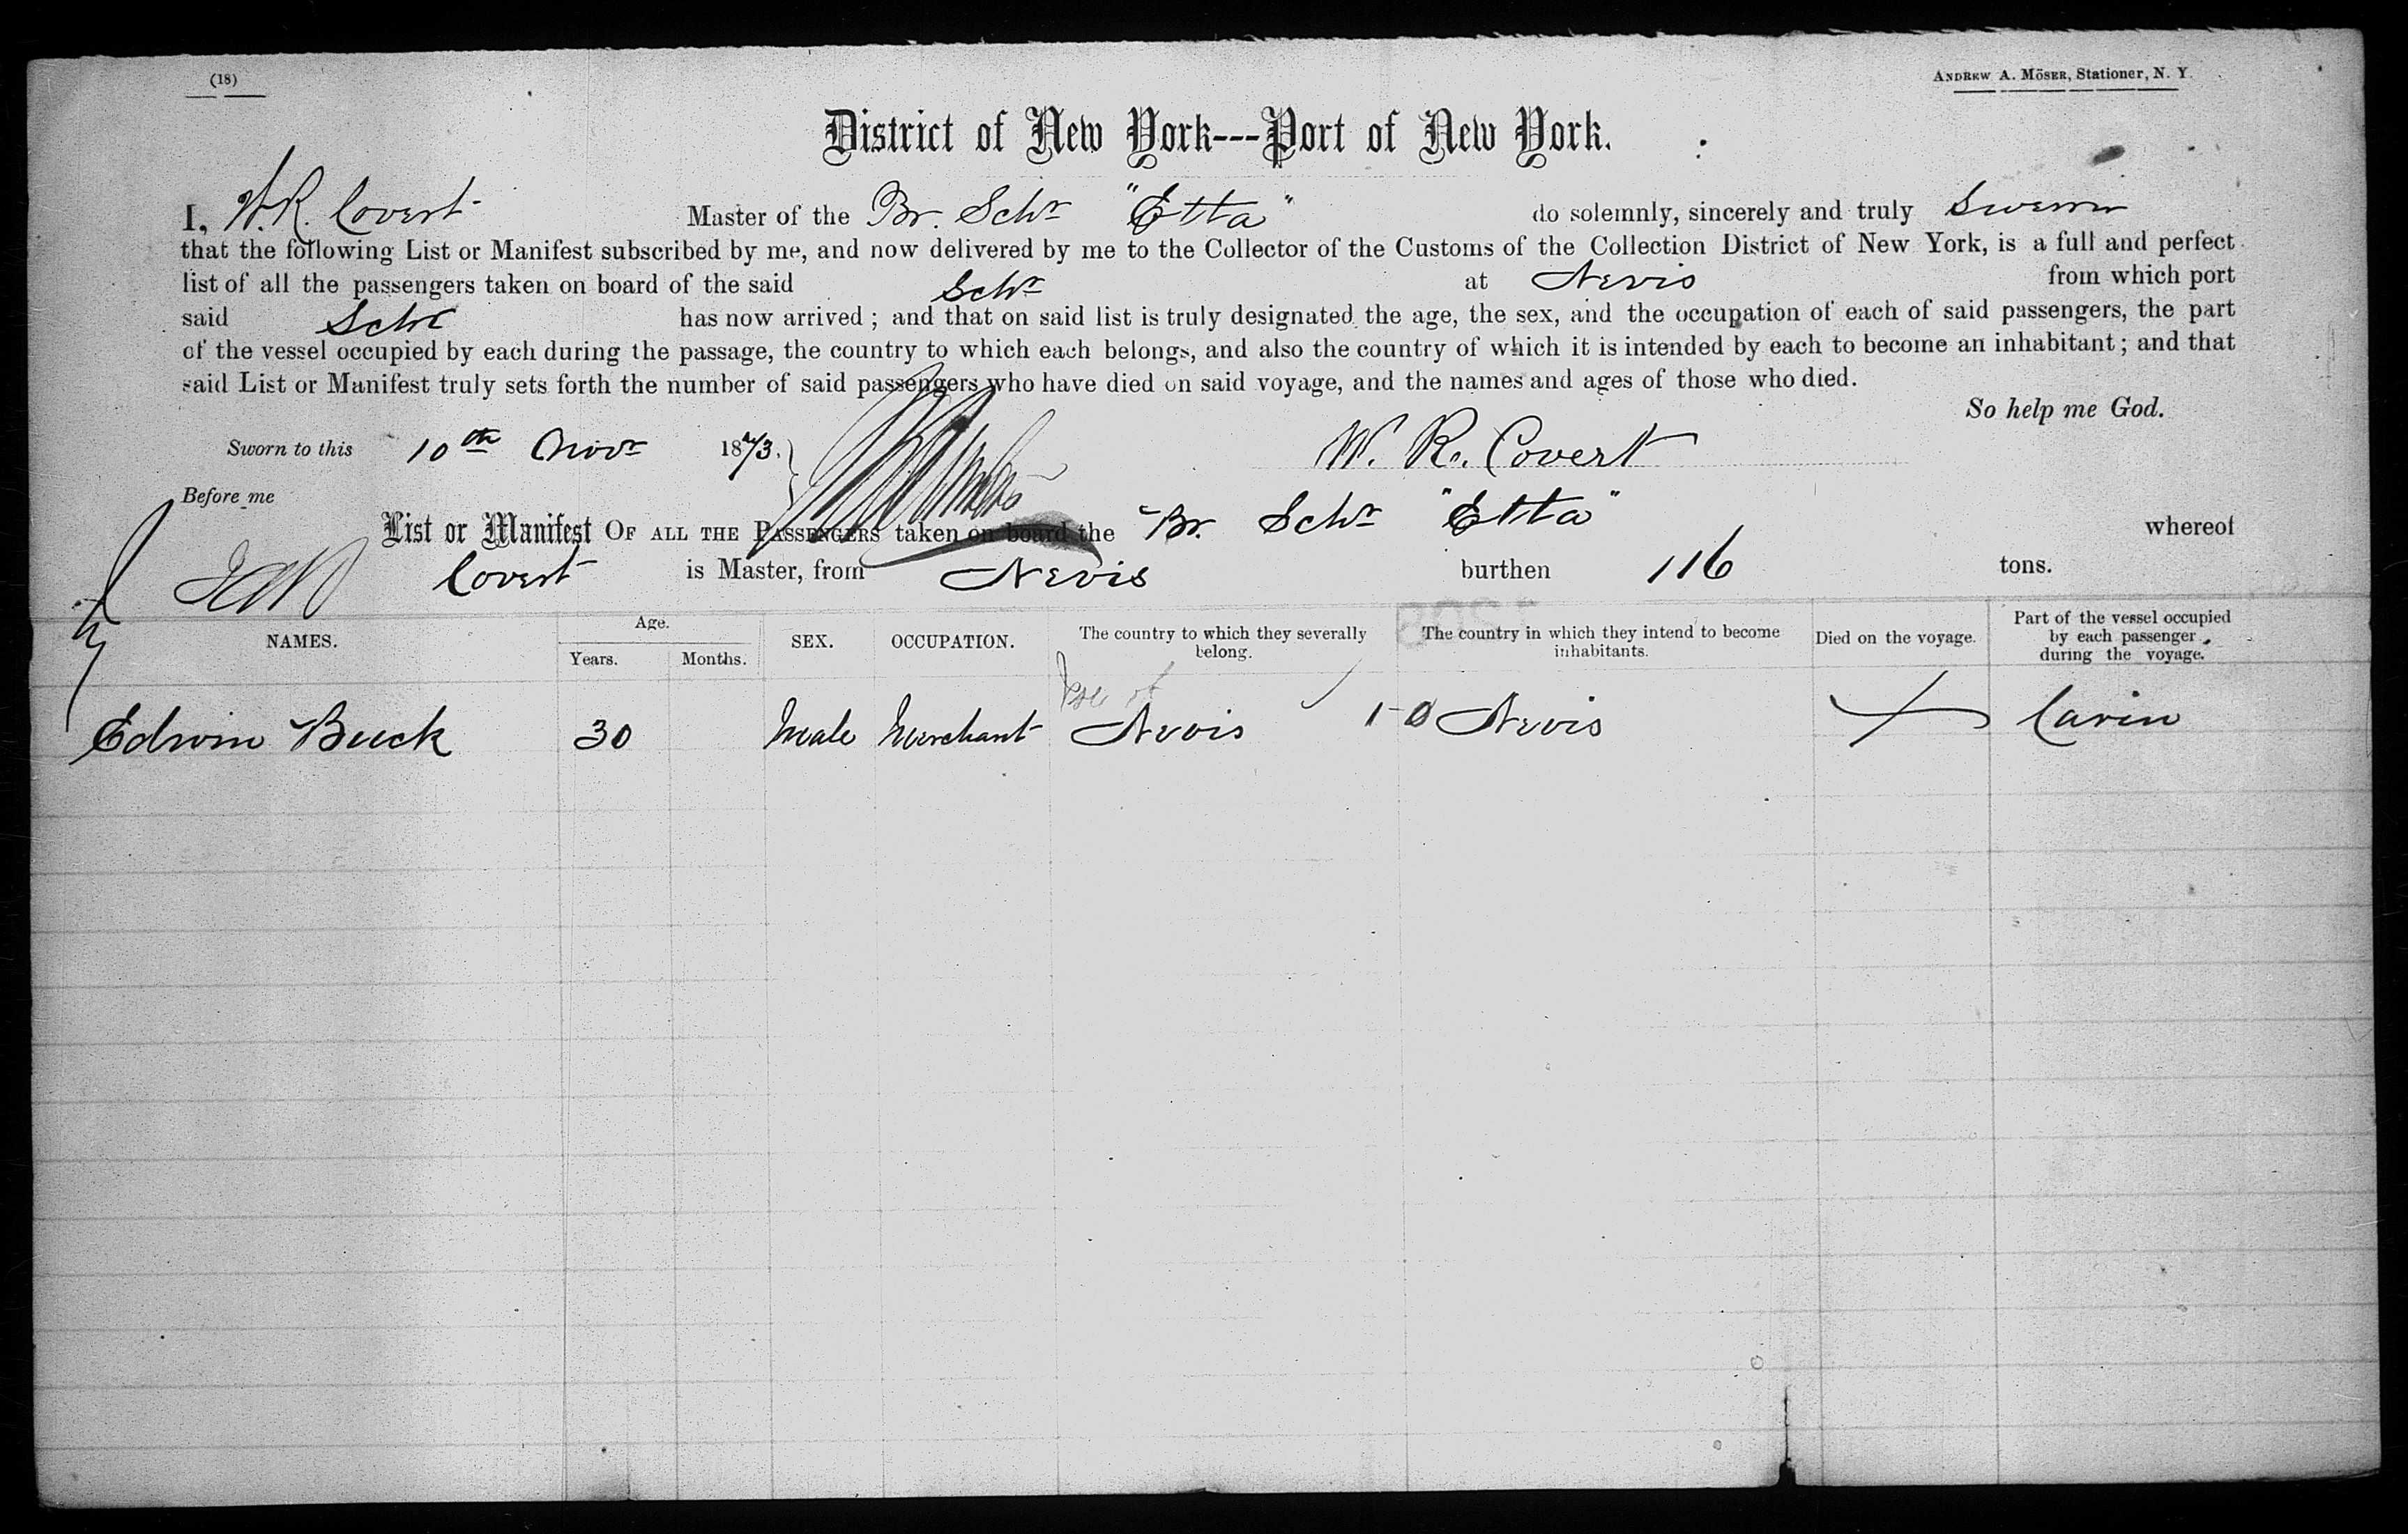 (18)
ANDREW A. MÖSER, Stationer, N. Y.
District of New York---Port of New York.
I, W. R. Covert Master of the Br. Schr "Etta" do solemnly, sincerely and truly Swear
that the following List or Manifest subscribed by me, and now delivered by me to the Collector of the Customs of the Collection District of New York, is a full and perfect
list of all the passengers taken on board of the said Schr at Nevis from which port
said Schr has now arrived ; and that on said list is truly designated the age, the sex, and the occupation of each of said passengers, the part
of the vessel occupied by each during the passage, the country to which each belongs, and also the country of which it is intended by each to become an inhabitant ; and that
said List or Manifest truly sets forth the number of said passengers who have died on said voyage, and the names and ages of those who died.
So help me God.
Sworn to this 10th Novr 1873. W. R. Covert
Before me
List or Manifest OF ALL THE PASSENGERS taken on board the Br. Schr "Etta" whereof
Covert is Master, from Nevis burthen 116 tons.
NAMES. Age. Years. Months. SEX. OCCUPATION. The country to which they severally belong. The country in which they intend to become inhabitants. Died on the voyage. Part of the vessel occupied by each passenger during the voyage.
Isle of
Edwin Buck 30 Male Merchant Nevis 1-0 Nevis Cavin